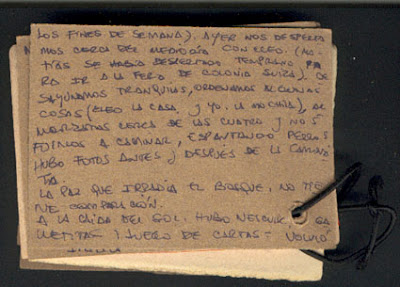 LOS FINES DE SEMANA). AYER NOS DESPERTA
MOS CERCA DEL MEDIODÍA CON CLEO. (MA
TÍAS SE HABÍA DESPERTADO TEMPRANO PA
RA IR A LA FERIA DE COLONIA SUIZA). DE
SAYUNAMOS TRANQUILAS, ORDENAMOS ALGUNAS
COSAS (CLEO LA CASA, Y YO LA MOCHILA), AL
MORZAMOS CERCA DE LAS CUATRO Y NOS
FUIMOS A CAMINAR, ESPANTANDO PERROS
HUBO FOTOS ANTES Y DESPUÉS DE LA CAMINA
TA.
LA PAZ QUE IRRADIA EL BOSQUE, NO TIE
NE COMPARACIÓN.
A LA CAÍDA DEL SOL. HUBO GA
LLETITAS Y JUEGO DE CARTAS - VOLVIÓ